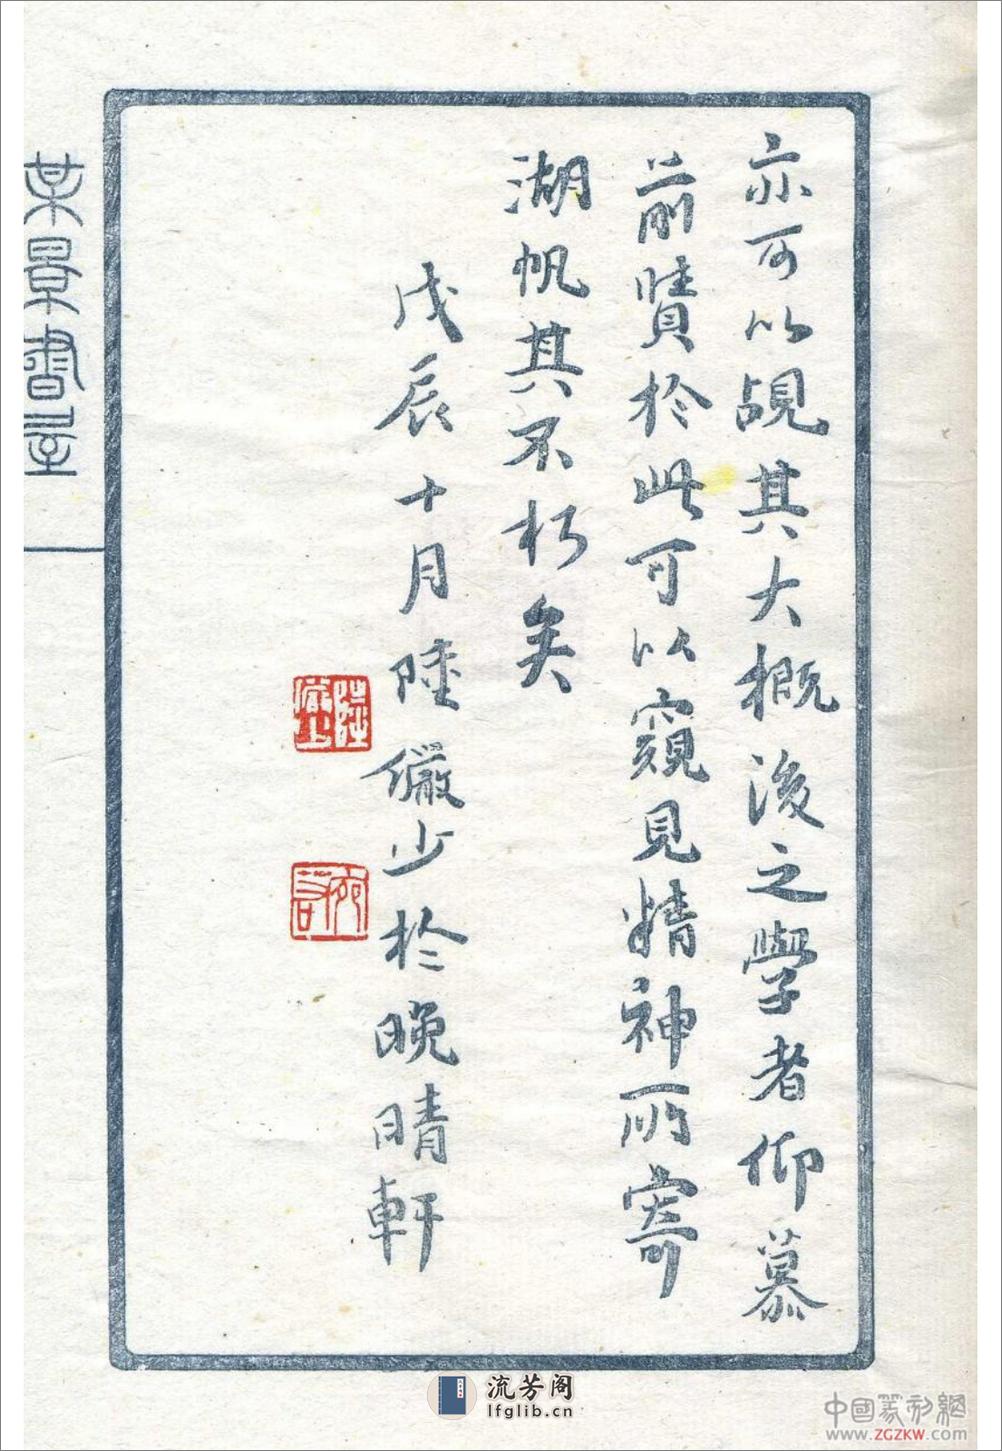 亦可以覘其大概後之學者仰慕
前賢於此可以窺見精神所寄
湖帆其不朽矣
戊辰十月陸儼少於晚晴軒
陸儼少
宛若
某景書屋
流芳阁
lfglib.cn
中國篆刻網
www.ZGZKW.com